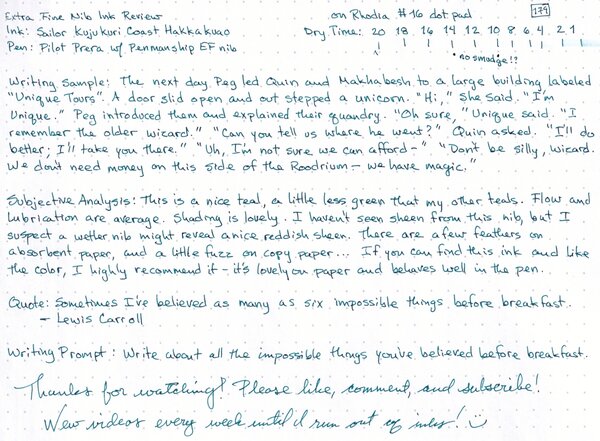 Extra Fine Nib Ink Review on Rhodia #16 dot pad 179
Ink: Sailor Kujukuri Coast Hakkakuao Dry Time: 20 18 16 14 12 10 8 6 4 2 1
Pen: Pilot Prera w/ Penmanship EF nib
no smudge!?
Writing Sample: The next day Peg led Quin and Makhabesh to a large building labeled
"Unique Tours". A door slid open and out stepped a unicorn. "Hi," she said. "I'm
Unique." Peg introduced them and explained their quandry. "Oh sure," Unique said. "I
remember the older wizard." "Can you tell us where he went?" Quin asked. "I'll do
better; I'll take you there." "Uh, I'm not sure we can afford—" "Don't be silly, wizard.
We don't need money on this side of the Roodrium — we have magic."
Subjective Analysis: This is a nice teal, a little less green that my other teals. Flow and
lubrication are average. Shading is lovely. I haven't seen sheen from this nib, but I
suspect a wetter nib might reveal a nice reddish sheen. There are a few feathers on
absorbent paper, and a little fuzz on copy paper... If you can find this ink and like
the color, I highly recommend it — it's lovely on paper and behaves well in the pen.
Quote: Sometimes I've believed as many as six impossible things before breakfast.
— Lewis Carroll
Writing Prompt: Write about all the impossible things you've believed before breakfast.
Thanks for watching! Please like, comment, and subscribe!
New videos every week until I run out of inks!